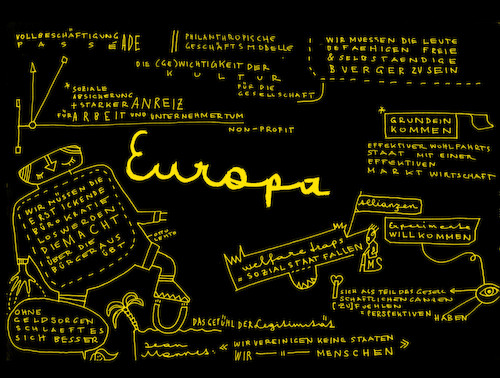 VOLLBESCHÄFTIGUNG
PASSÉ
ADE
PHILANTHROPISCHE
GESCHÄFTSMODELLE
WIR MUESSEN DIE LEUTE
BEFAEHIGEN FREIE
& SELBSTAENDIGE
BUERGER ZU SEIN
DIE (GE)WICHTIGKEIT DER
KULTUR
FÜR DIE
GESELLSCHAFT
* SOZIALE
ABSICHERUNG
+ STARKER ANREIZ
FÜR ARBEIT UND UNTERNEHMERTUM
NON-PROFIT
* GRUNDEIN
KOMMEN
EFFEKTIVER WOHLFAHRTS
STAAT MIT EINER
EFFEKTIVEN
MARKT WIRTSCHAFT
Europa
WIR MÜSSEN DIE
ERSTICKENDE
BÜROKRATIE
LOSWERDEN
DIE MACHT
ÜBER DIE
BÜRGER AUS
ÜBT
Allianzen
Experimente
WILLKOMMEN
welfare traps
= SOZIALSTAAT FALLEN
SICH ALS TEIL DES GESELL
SCHAFTLICHEN GANZEN
[ZU] FUEHLEN
= PERSPEKTIVEN HABEN
OHNE
GELDSORGEN
SCHLAEFT ES
SICH BESSER
DAS GEFÜHL DER Legitimität
Jean
Monnet:
«WIR VEREINIGEN KEINE STAATEN
WIR —||— MENSCHEN»